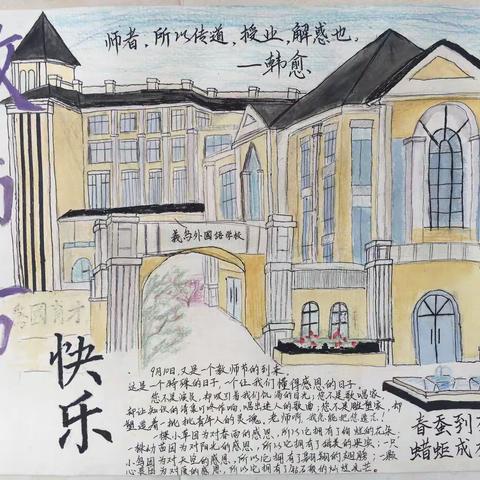 师者，所以传道，授业，解惑也。
—韩愈
教师节
快乐
義乌外國语學校
9月10日，又是一个教师节的到来，
这是一个特殊的日子，一个让我们懂得感恩的日子。
您不是演员，却吸引着我们饥渴的目光；您不是歌唱家，
却让知识的清泉叮咚作响，唱出迷人的歌曲；您不是雕塑家，却
塑造着一批批青年人的灵魂。老师啊，我怎能把您遗忘！
一棵小草因为对春雨的感恩，所以它拥有了
一株幼苗因为对阳光的感恩，所以它拥有了
的果实；一只
小鸟因为对天空的感恩，所以它拥有了
的翅膀；一颗
心灵因为对
的感恩，所以它拥有了钻石般的灿烂光芒。
春蚕到
蜡炬成